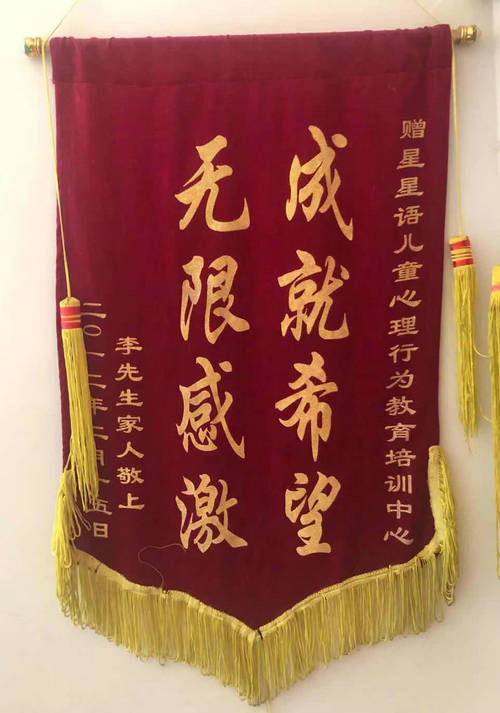 赠星星语儿童心理行为教育培训中心
成就希望
无限感激
李先生家人敬上
二〇一二年二月十五日